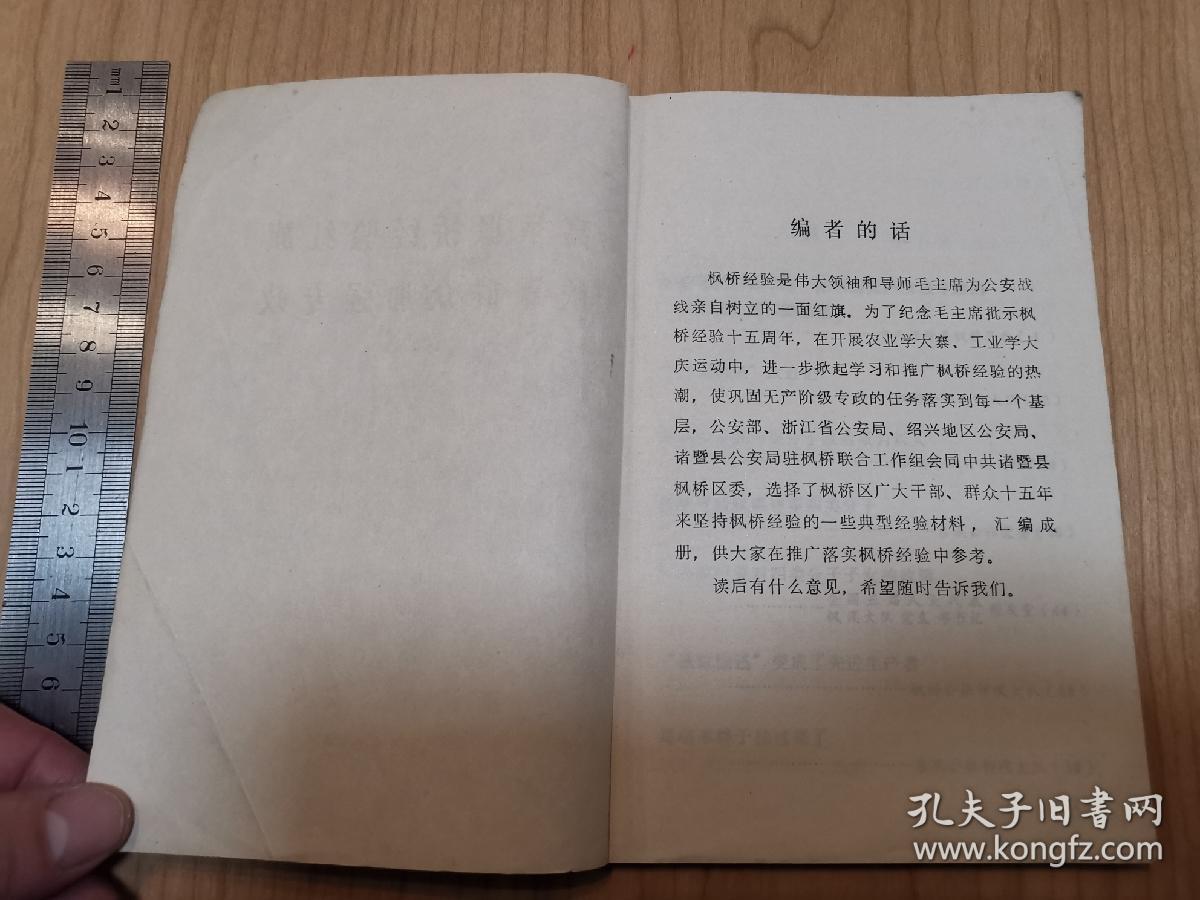 mm1
2
3
4
5
6
7
8
9
10
1
2
3
4
5
6
编者的话
枫桥经验是伟大领袖和导师毛主席为公安战
线亲自树立的一面红旗。为了纪念毛主席批示枫
桥经验十五周年，在开展农业学大寨、工业学大
庆运动中，进一步掀起学习和推广枫桥经验的热
潮，使巩固无产阶级专政的任务落实到每一个基
层，公安部、浙江省公安局、绍兴地区公安局、
诸暨县公安局驻枫桥联合工作组会同中共诸暨县
枫桥区委，选择了枫桥区广大干部、群众十五年
来坚持枫桥经验的一些典型经验材料，汇编成
册，供大家在推广落实枫桥经验中参考。
读后有什么意见，希望随时告诉我们。
孔夫子旧书网
www.kongfz.com